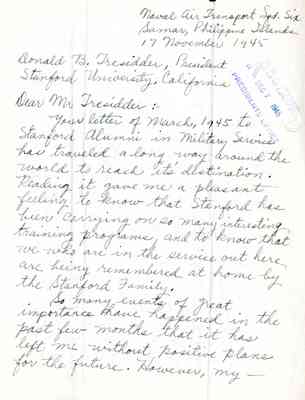 Naval Air Transport Sqd. Six
Samar, Philippine Islands
17 November 1945
Donald B. Tresidder, President
Stanford University, California
Dear Mr. Tresidder:
Your letter of March, 1945 to
Stanford Alumni in Military Service
has traveled a long way around the
world to reach its destination.
Reading it gave me a pleasant
feeling to know that Stanford has
been carrying on so many interesting
training programs and to know that
we who are in the service out here
are being remembered at home by
the Stanford Family.
So many events of great
importance have happened in the
past few months that it has
left me without positive plans
for the future. However, my —